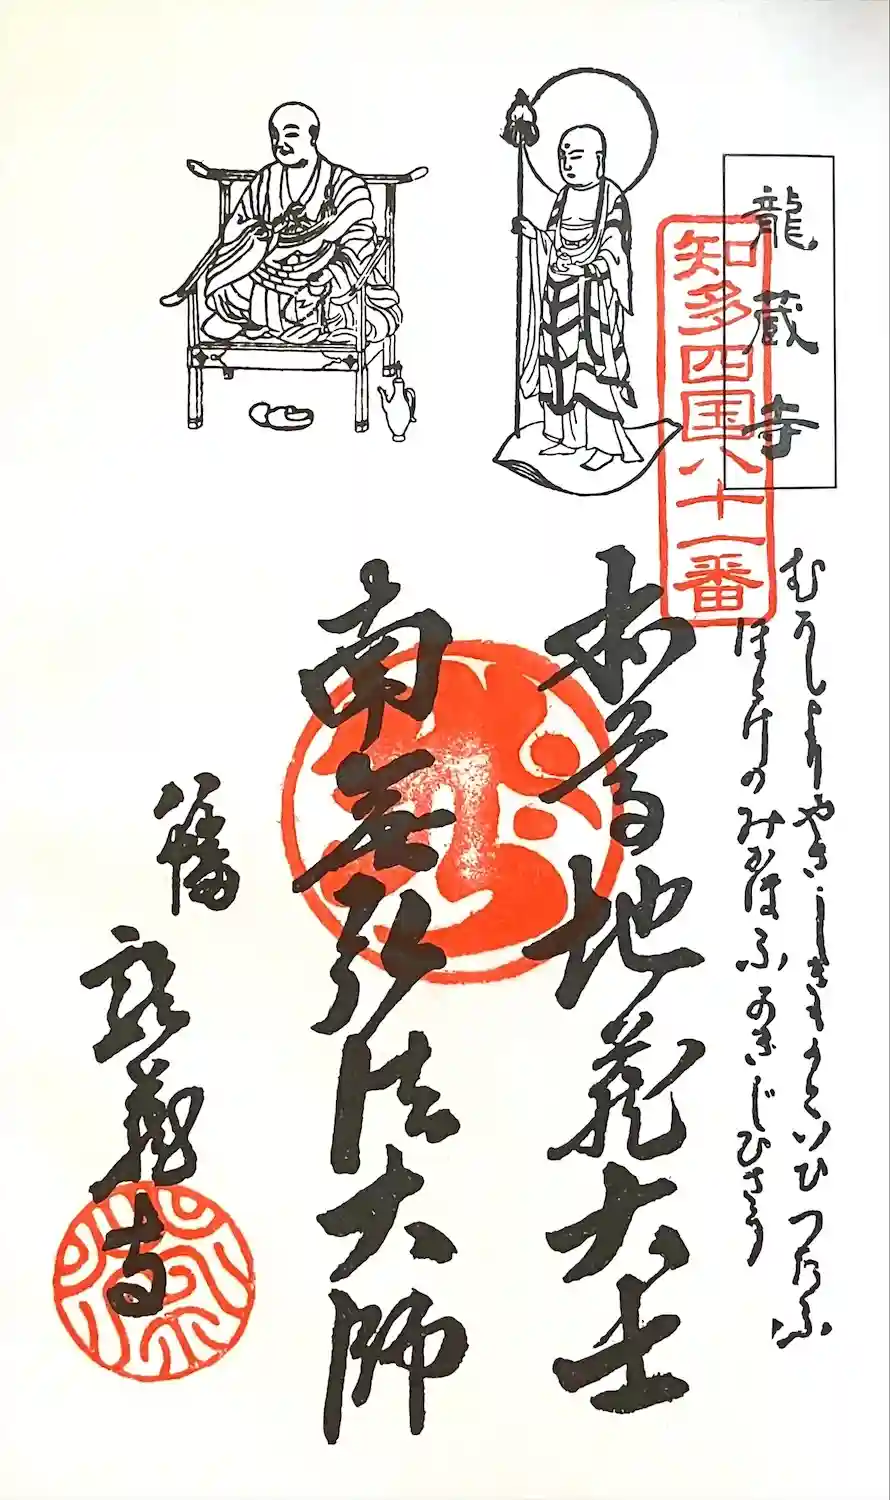 龍蔵寺
知多四国八十一番
むかしよりやさしきものといひつたふ
ほとけのみかほふかきじひさう
本尊地蔵大士
南無弘法大師
八幡
龍蔵寺